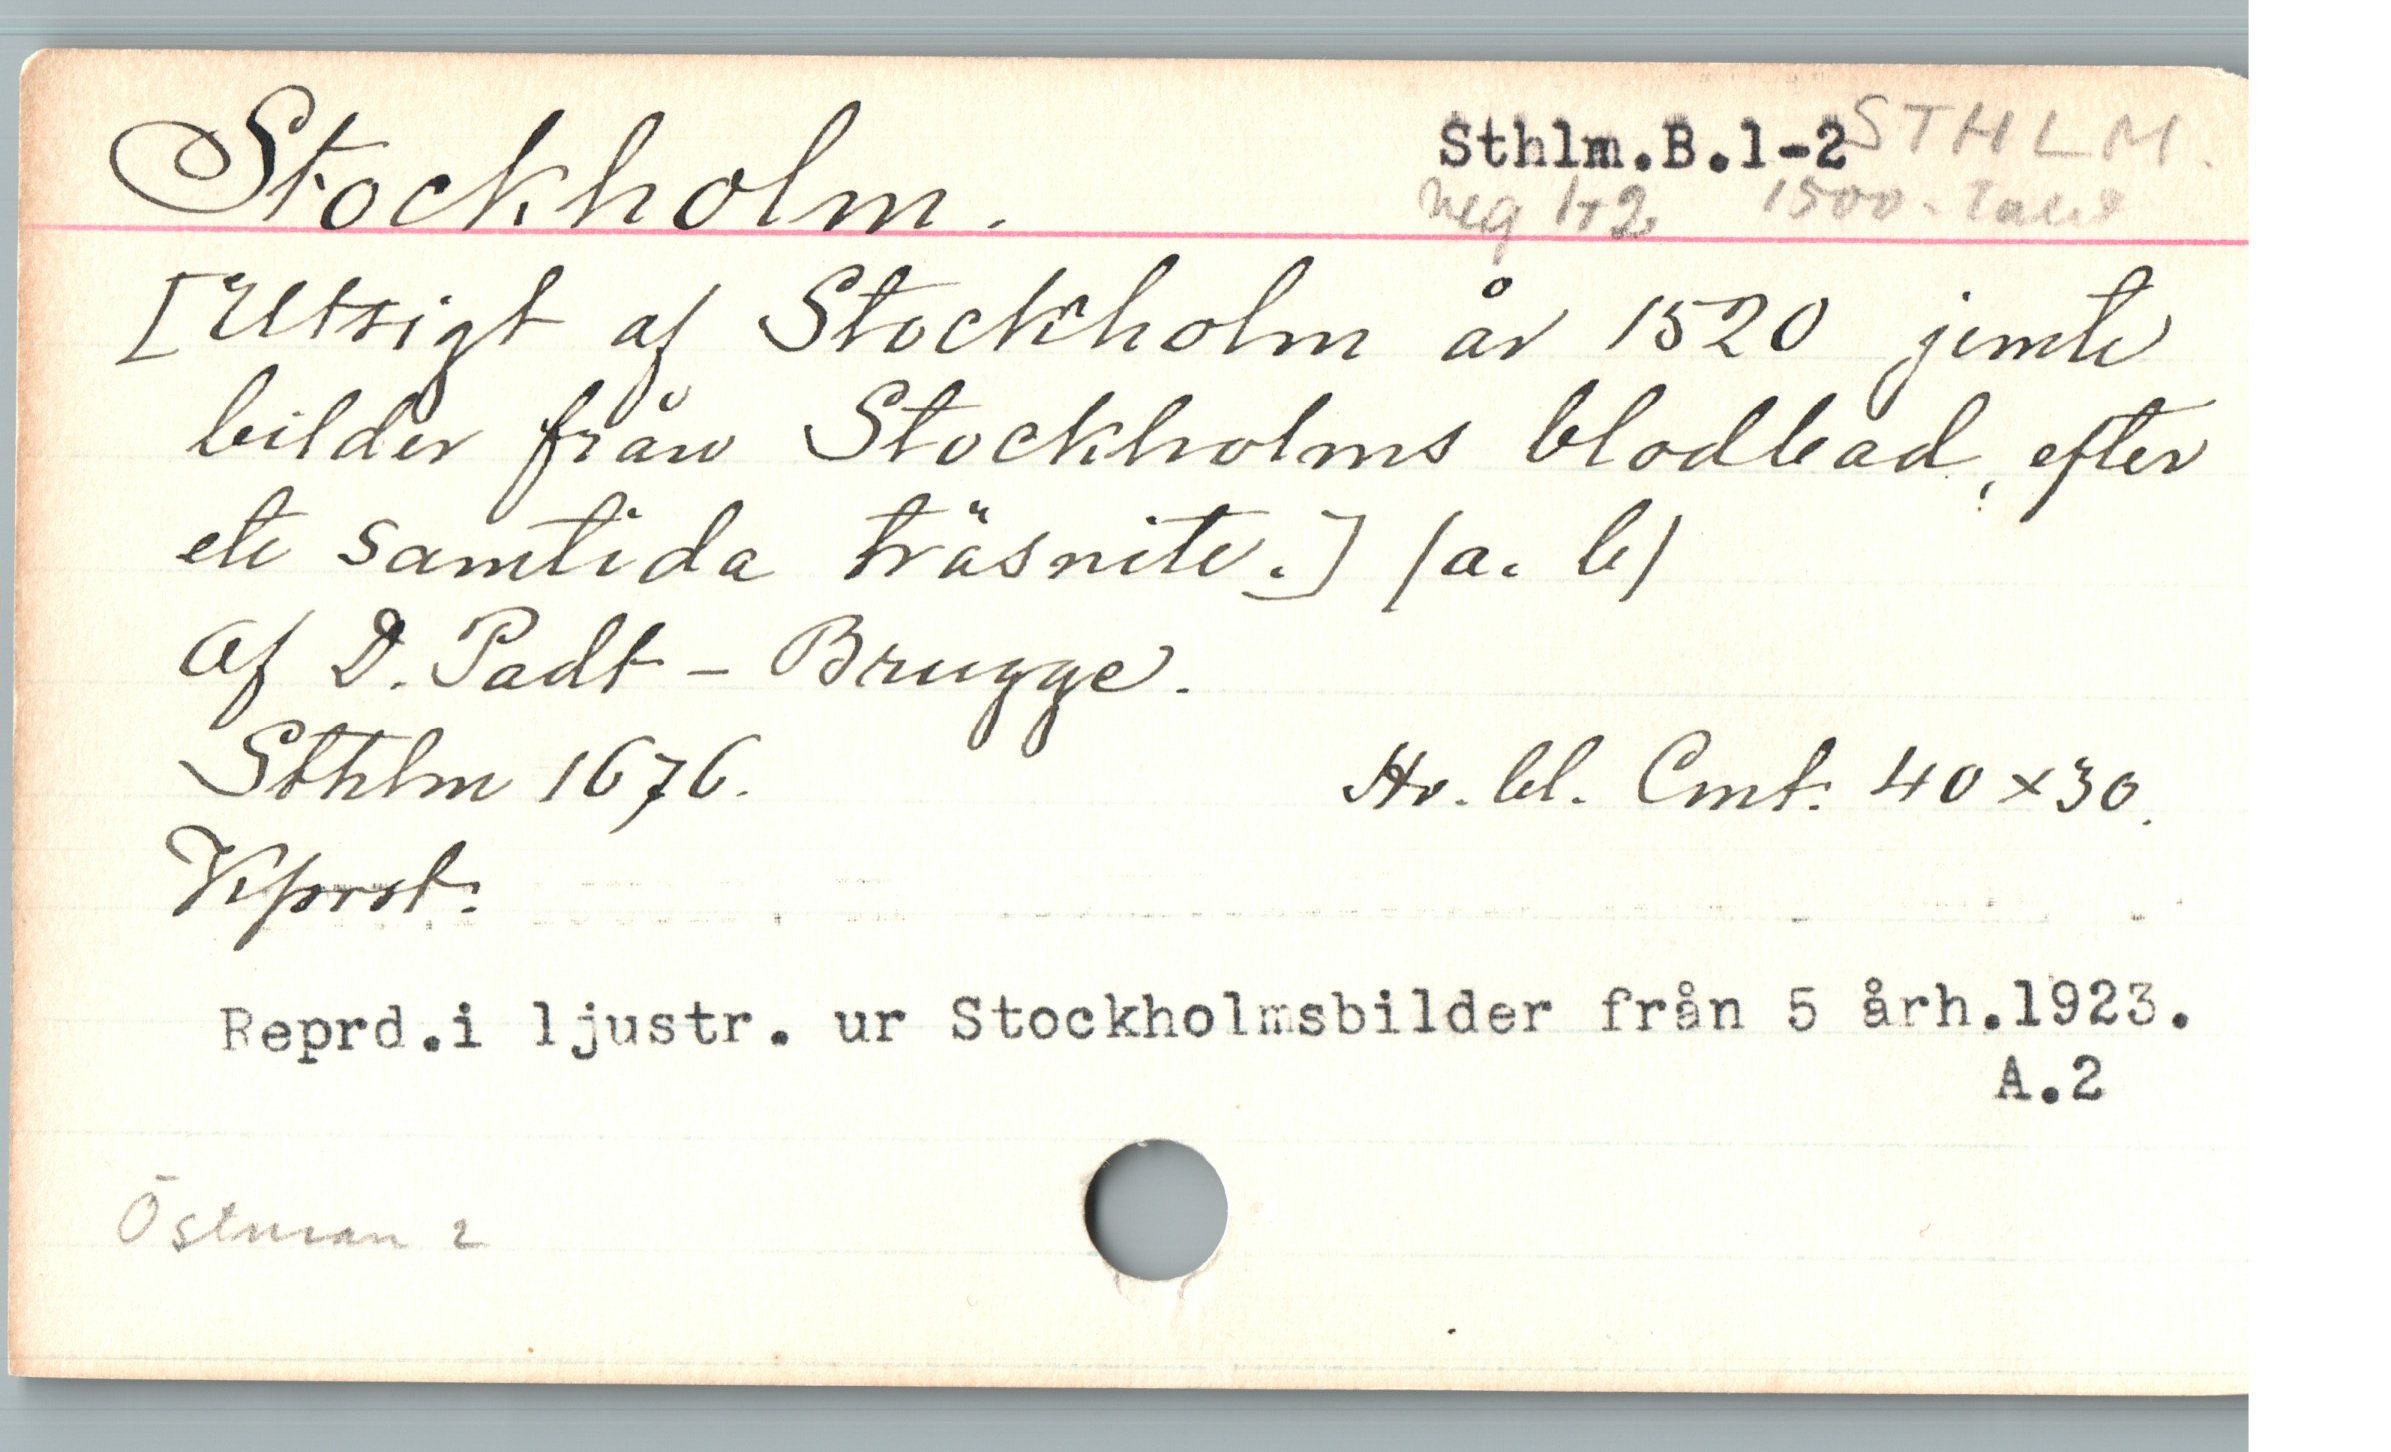 Stockholm.
Sthlm.B.1-2 STHLM.
neg 1+2 1500-talet
[Utsigt af Stockholm år 1520 jemte
bilder från Stockholms blodbad, efter
ett samtida träsnitt.] (a. b)
af D. Padt-Brugge.
Sthlm 1676. Hr. bl. Cmt. 40 x 30.
Kprst.
Reprd.i ljustr. ur Stockholmsbilder från 5 årh.1923.
A.2
Östman 2